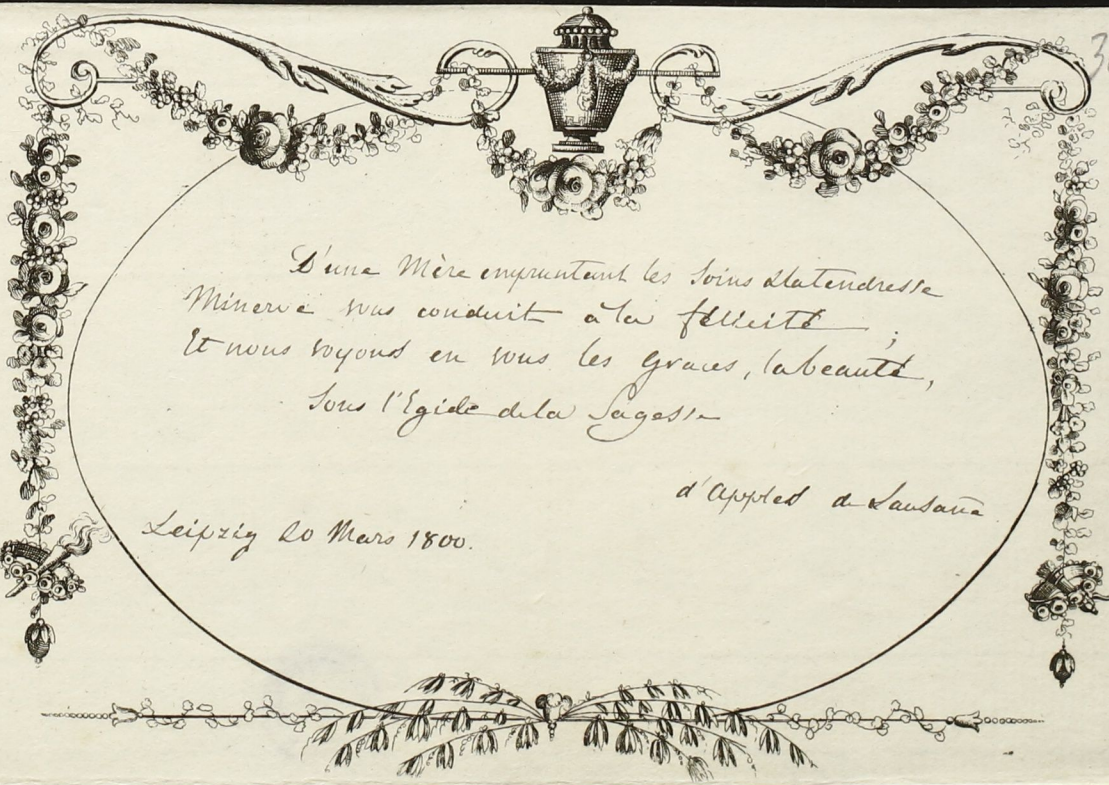 D'une Mère empruntant les soins & la tendresse
Minerve vous conduit à la félicité ;
Et nous voyons en vous les Graces, la beauté,
Sous l'Egide de la Sagesse
d'Apples de Lausane
Leipzig 20 Mars 1800.